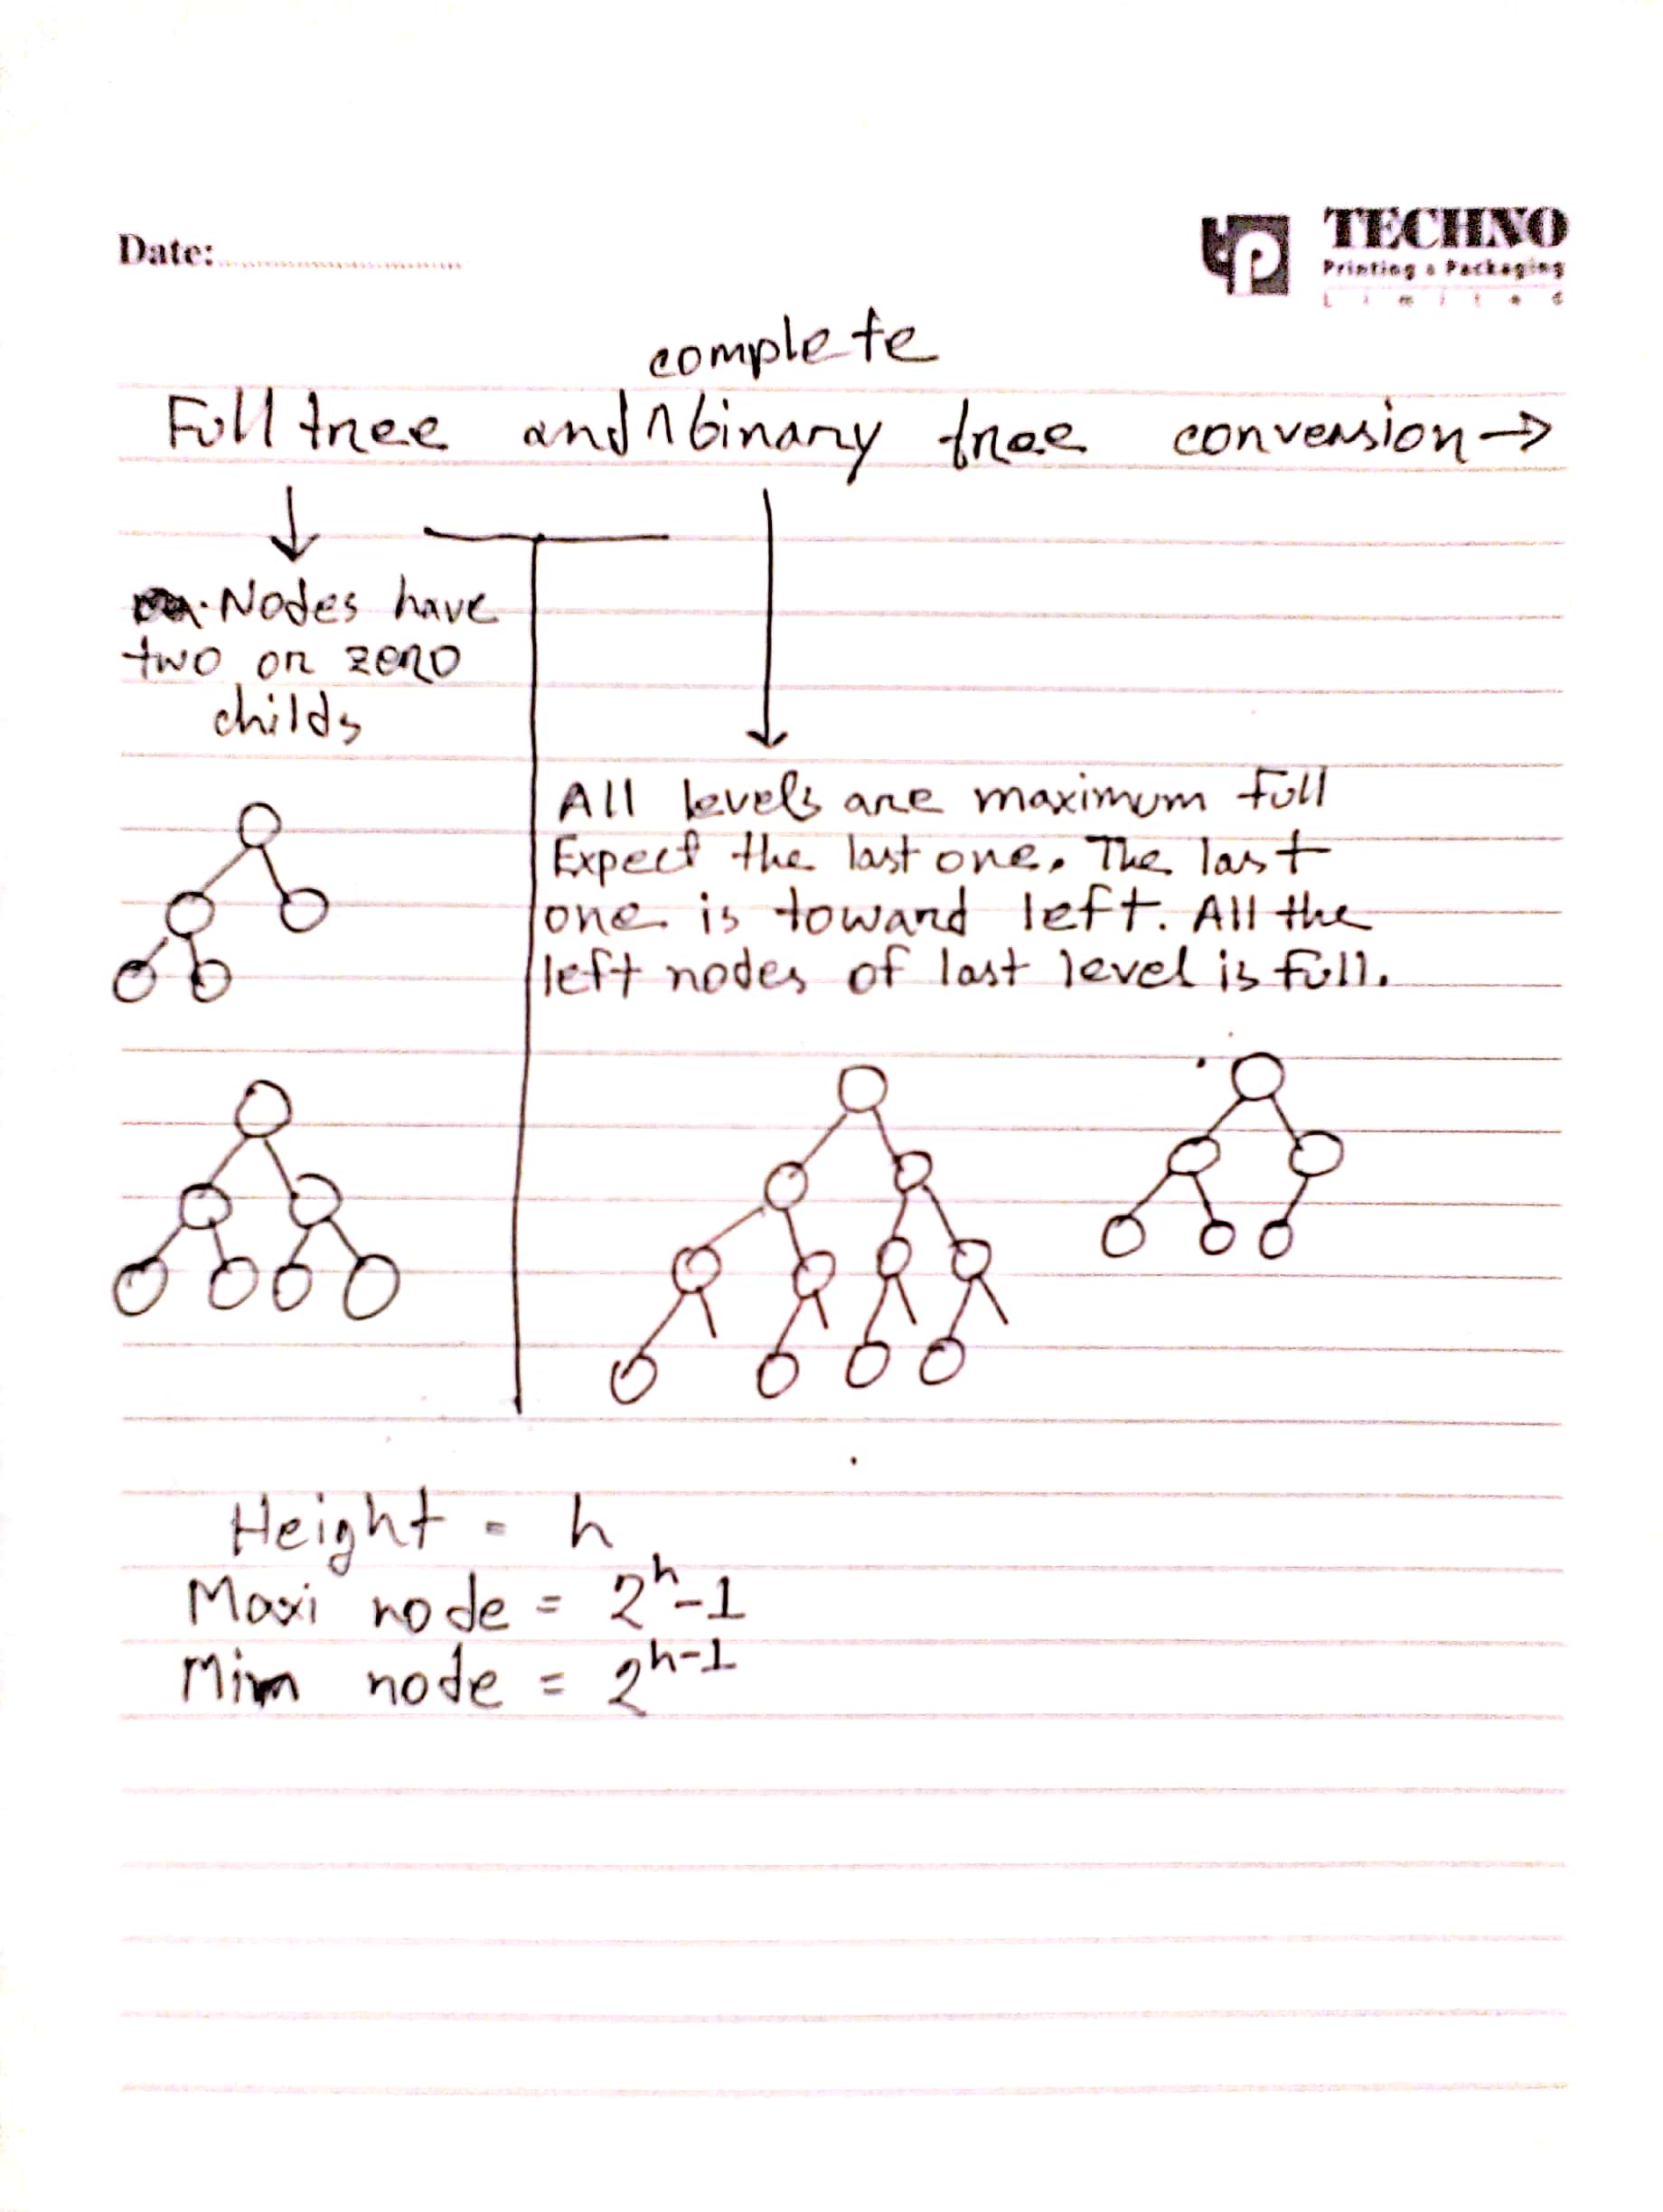 Date:
TECHNO
Printing & Packaging
Limited
complete
Full tree and ^ binary tree conversion →
Nodes have
two or zero
childs
All levels are maximum full
Expect the last one. The last
one is toward left. All the
left nodes of last level is full.
Height = h
Maxi node = 2^h-1
Mim node = 2^h-1